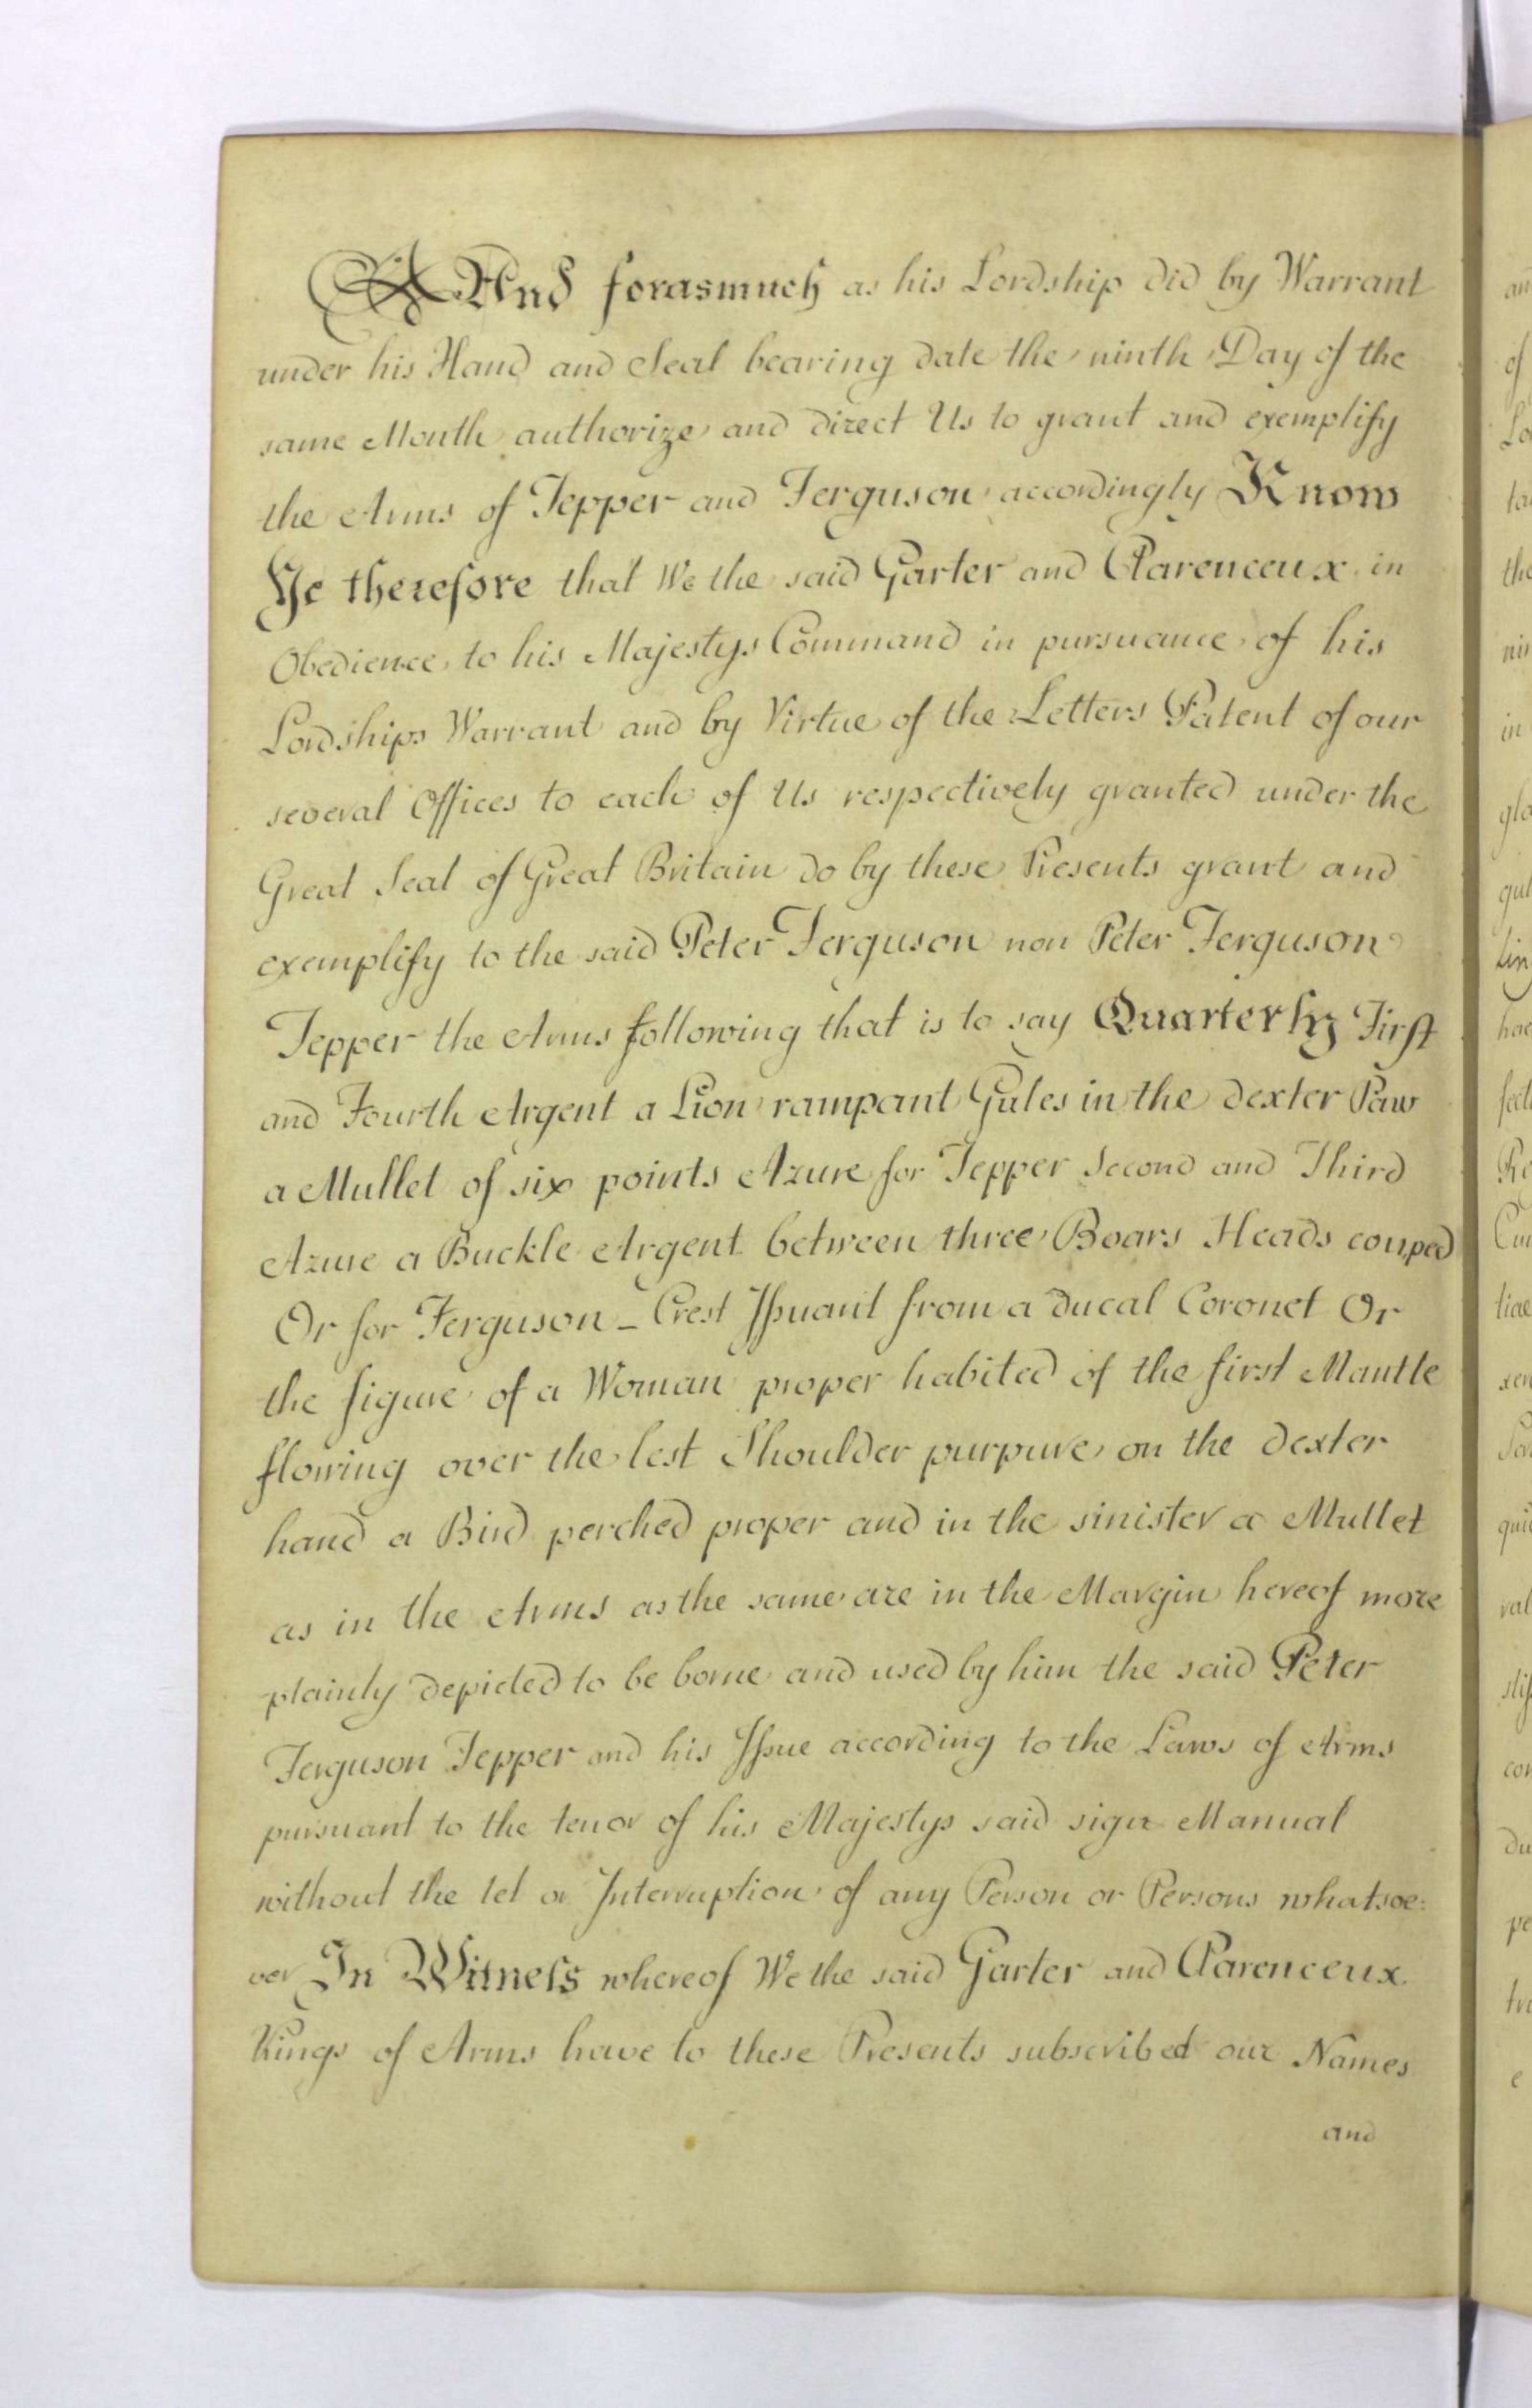 And forasmuch as his Lordship did by Warrant
under his Hand and Seal bearing date the ninth Day of the
same Month authorize and direct Us to grant and exemplify
the Arms of Tepper and Ferguson accordingly Know
Ye therefore that We the said Garter and Clarenceux in
Obedience to his Majestys Command in pursuance of his
Lordships Warrant and by Virtue of the Letters Patent of our
several Offices to each of Us respectively granted under the
Great Seal of Great Britain do by these Presents grant and
exemplify to the said Peter Ferguson non Peter Ferguson
Tepper the Arms following that is to say Quarterly First
and Fourth Argent a Lion rampant Gules in the dexter Paw
a Mullet of six points Azure for Tepper Second and Third
Azure a Buckle Argent between three Boars Heads couped
Or for Ferguson _ Crest Issuant from a ducal Coronet Or
the figure of a Woman proper habited of the first Mantle
flowing over the lest Shoulder purpure on the dexter
hand a Bird perched proper and in the sinister a Mullet
as in the Arms as the same are in the Margin hereof more
plainly depicted to be borne and used by him the said Peter
Ferguson Tepper and his Issue according to the Laws of Arms
pursuant to the tenor of his Majestys said sign Manual
without the let or Interruption of any Person or Persons whatsoe:
ver In Witness whereof We the said Garter and Clarenceux
Kings of Arms have to these Presents subscribed our Names
and